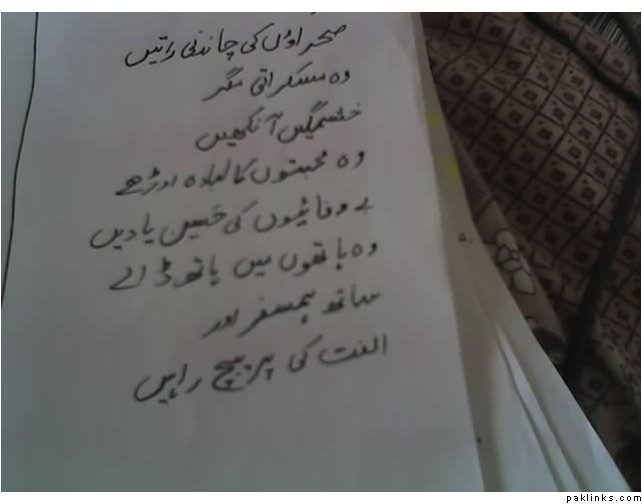 صحراؤں کی چاندنی راتیں
وہ مسکراتی مگر
خشمگیں آنکھیں
وہ محبتوں کا لبادہ اوڑھے
بے وفائیوں کی حسیں یادیں
وہ ہاتھوں میں ہاتھ ڈالے
ساتھ ہمسفر اور
الفت کی پر پیچ راہیں
paklinks.com